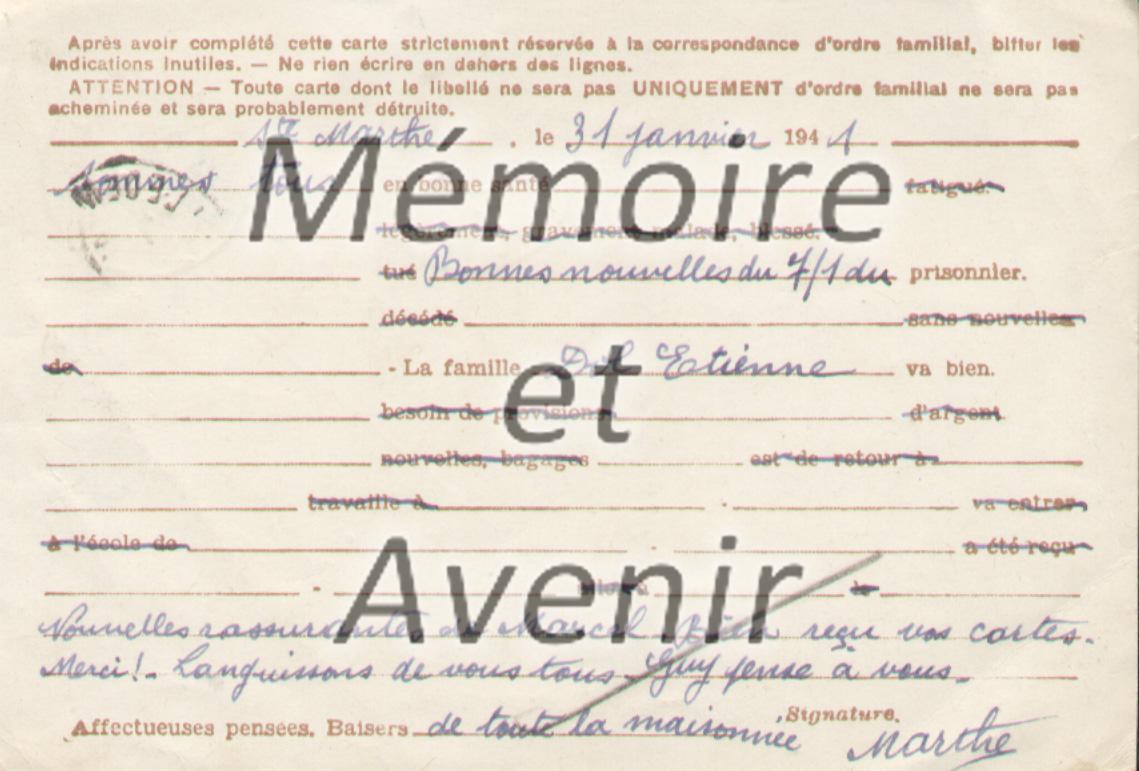 Après avoir complété cette carte strictement réservée à la correspondance d'ordre familial, biffer les
indications inutiles. — Ne rien écrire en dehors des lignes.
ATTENTION — Toute carte dont le libellé ne sera pas UNIQUEMENT d'ordre familial ne sera pas
acheminée et sera probablement détruite.
Ste Marthe, le 31 janvier 1941
Sommes tous en bonne santé fatigué.
légèrement, gravement malade, blessé.
tué Bonnes nouvelles du 7/1 du prisonnier.
décédé sans nouvelles
de - La famille Etienne va bien.
besoin de provisions d'argent
nouvelles, bagages est de retour à
travaille à va entrer
à l'école de a été reçu
à
Nouvelles rassurantes de Marcel reçu vos cartes.
Merci! - Languissons de vous tous - Guy pense à vous -
Affectueuses pensées. Baisers de toute la maisonnée Signature.
Marthe
Mémoire
et
Avenir